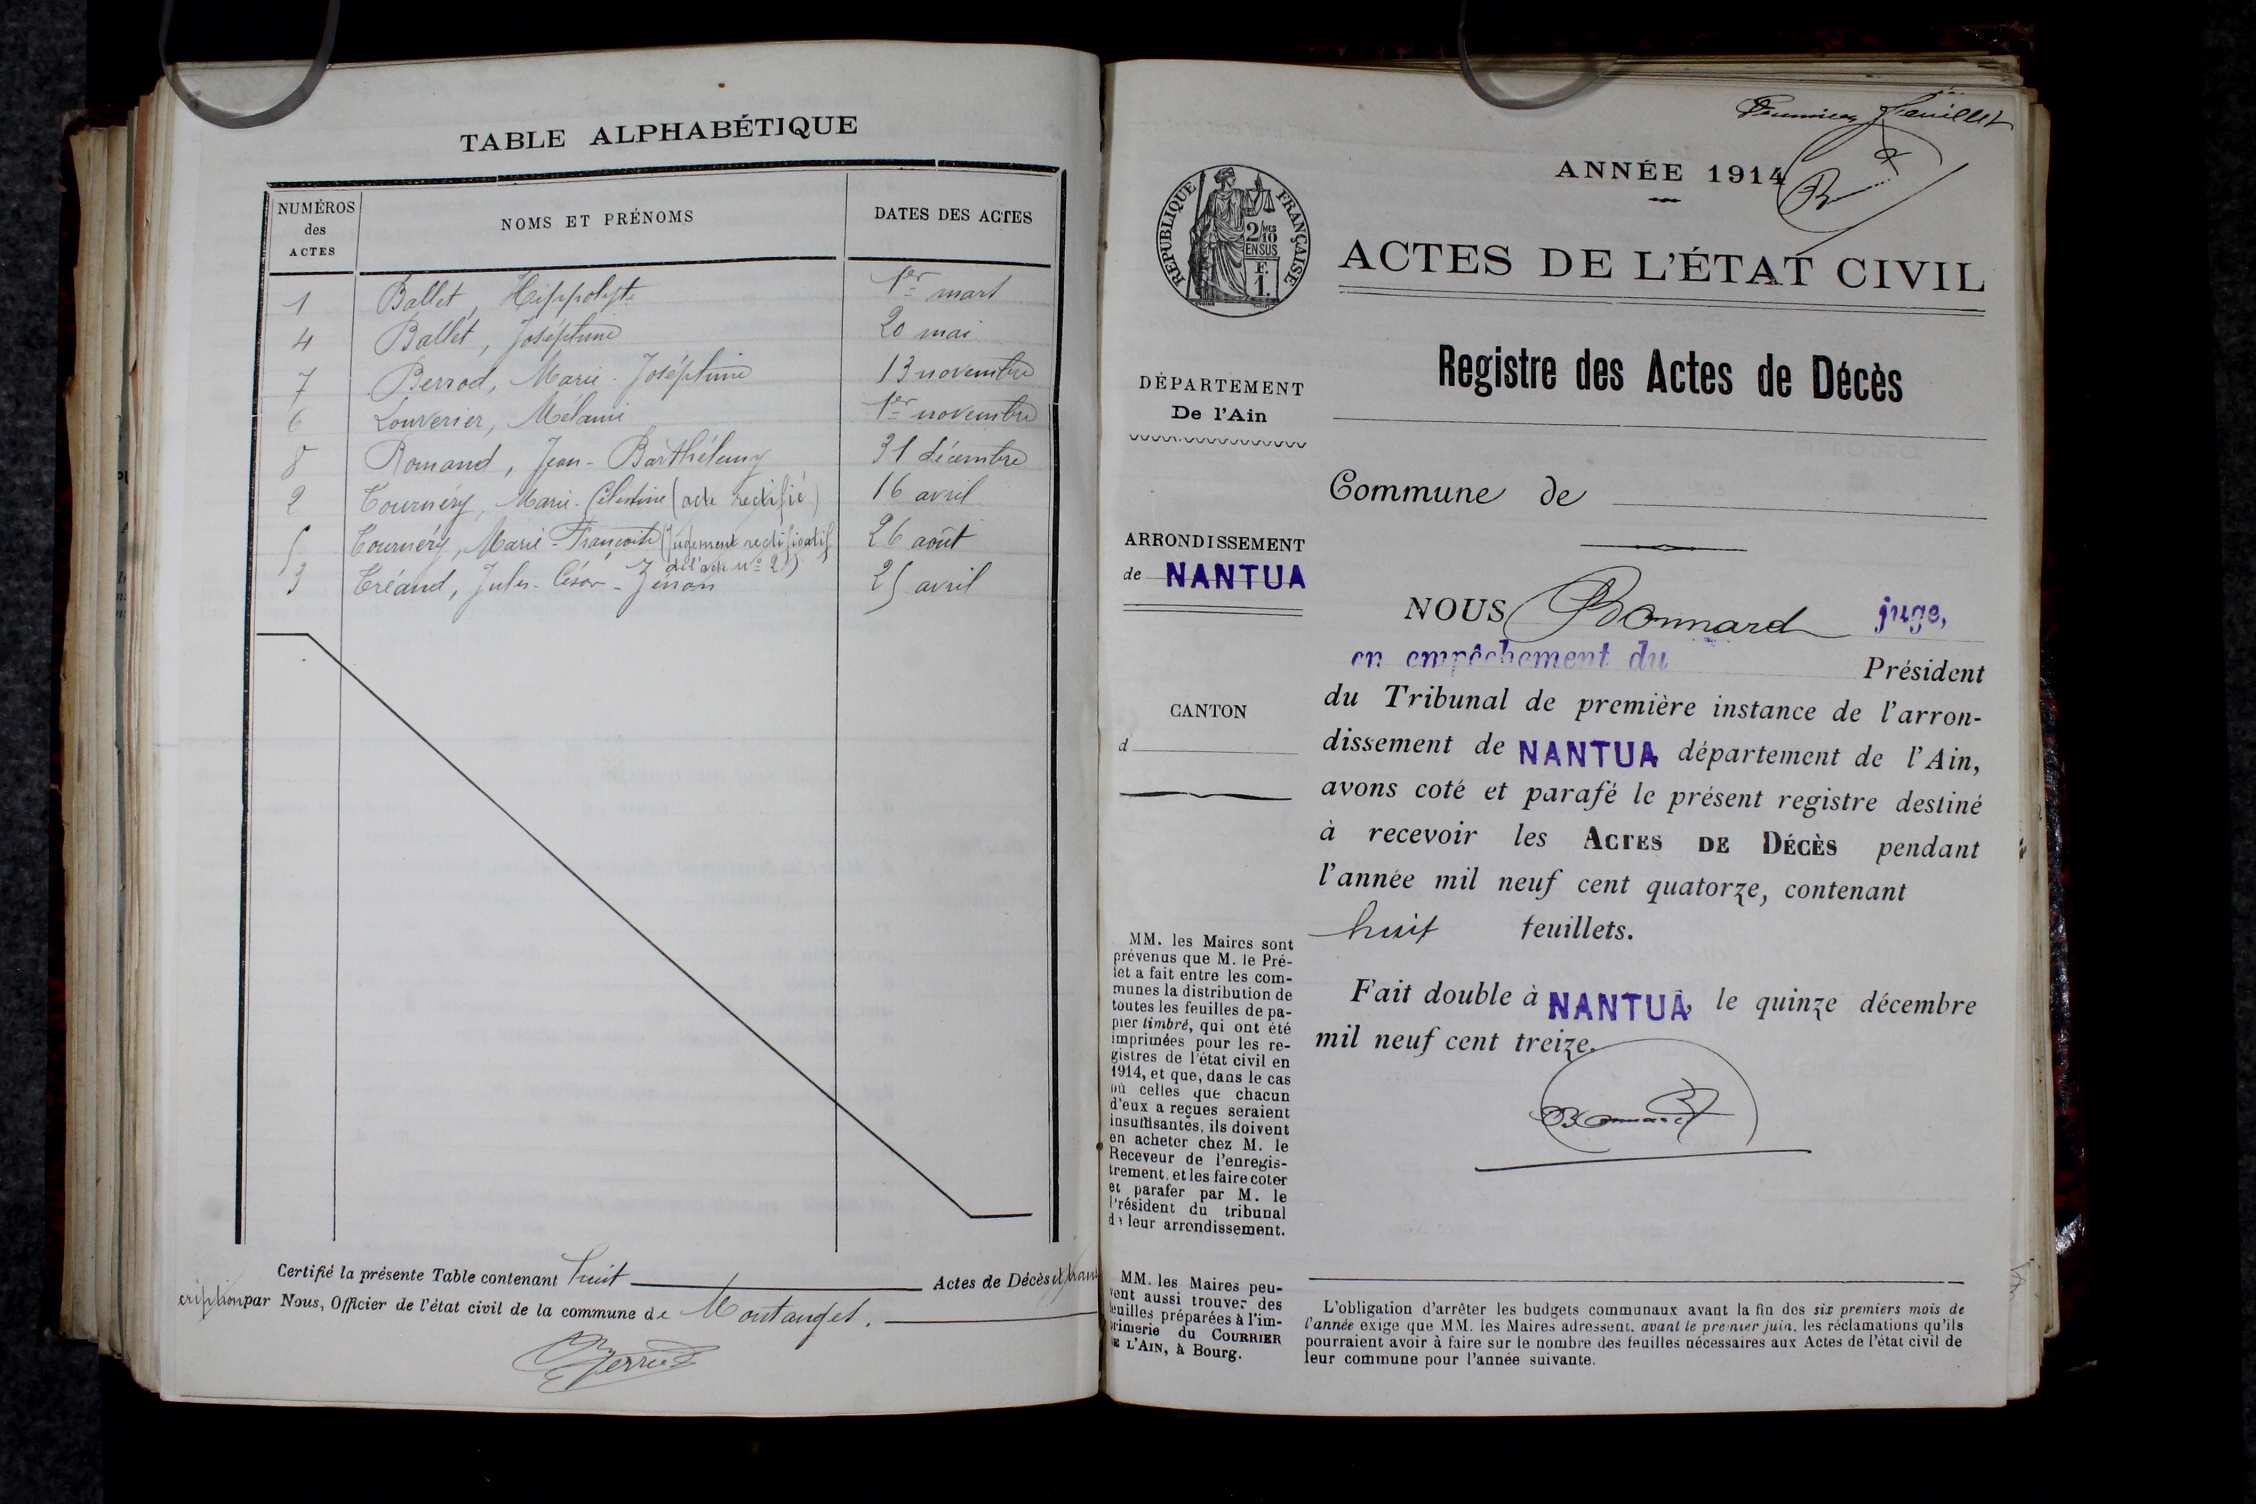 TABLE ALPHABÉTIQUE
NUMÉROS des ACTES
NOMS ET PRÉNOMS
DATES DES ACTES
1 Ballet, Hippolyte 1er mars
4 Ballet, Joséphine 20 mai
7 Berrod, Marie-Joséphine 13 novembre
6 Louvrier, Mélanie 1er novembre
8 Romand, Jean-Barthélemy 31 décembre
2 Tournéry, Marie-Célestine (acte rectifié) 16 avril
5 Tournéry, Marie-Françoise (Jugement rectificatif de l'acte n° 2) 26 août
3 Tréand, Jules-César-Zénon 25 avril
Certifié la présente Table contenant huit Actes de Décès et trans
cription par Nous, Officier de l'état civil de la commune de Montanges.
Premier feuillet
ANNÉE 1914
RÉPUBLIQUE FRANÇAISE
2/10 MES
EN SUS
F.
1.
ACTES DE L'ÉTAT CIVIL
Registre des Actes de Décès
DÉPARTEMENT
De l'Ain
Commune de
ARRONDISSEMENT
de NANTUA
CANTON
d
NOUS Bonnard juge,
en empêchement du Président
du Tribunal de première instance de l'arron-
dissement de NANTUA département de l'Ain,
avons coté et parafé le présent registre destiné
à recevoir les ACTES DE DÉCÈS pendant
l'année mil neuf cent quatorze, contenant
huit feuillets.
Fait double à NANTUA, le quinze décembre
mil neuf cent treize.
Bonnard
MM. les Maires sont
prévenus que M. le Pré-
fet a fait entre les com-
munes la distribution de
toutes les feuilles de pa-
pier timbré, qui ont été
imprimées pour les re-
gistres de l'état civil en
1914, et que, dans le cas
où celles que chacun
d'eux a reçues seraient
insuffisantes, ils doivent
en acheter chez M. le
Receveur de l'enregis-
trement, et les faire coter
et parafer par M. le
Président du tribunal
de leur arrondissement.
MM. les Maires peu-
vent aussi trouver des
feuilles préparées à l'im-
primerie du COURRIER
DE L'AIN, à Bourg.
L'obligation d'arrêter les budgets communaux avant la fin des six premiers mois de
l'année exige que MM. les Maires adressent, avant le premier juin, les réclamations qu'ils
pourraient avoir à faire sur le nombre des feuilles nécessaires aux Actes de l'état civil de
leur commune pour l'année suivante.